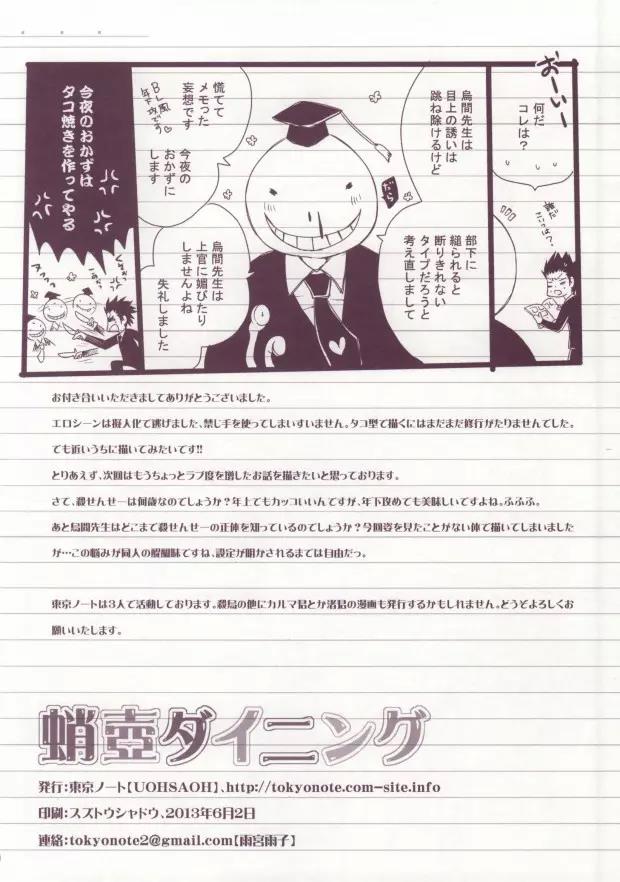 おーいー
何だ
コレは？
誰だ
こいつは？
烏間先生は
目上の誘いは
跳ね除けるけど
だら
部下に
縋られると
断りきれない
タイプだろうと
考え直しまして
慌ててて
メモった
妄想です
BL風
年下攻で♡
今夜の
おかずに
します
烏間先生は
上官に媚びたり
しませんよね
失礼しました
今夜のおかずは
タコ焼きを作ってやる
お付き合いいただきましてありがとうございました。
エロシーンは擬人化で逃げました、禁じ手を使ってしまいすいません。タコ型で描くにはまだまだ修行がたりませんでした。
でも近いうちに描いてみたいです!!
とりあえず、次回はもうちょっとラブ度を増したお話を描きたいと思っております。
さて、殺せんせーは何歳なのでしょうか？年上でもカッコいいんですが、年下攻めでも美味しいですよね。ふふふ。
あと烏間先生はどこまで殺せんせーの正体を知っているのでしょうか？今回姿を見たことがない体で描いてしまいました
が…この悩みが同人の醍醐味ですね、設定が明かされるまでは自由だっ。
東京ノートは3人で活動しております。殺烏の他にカルマ君とか渚君の漫画も発行するかもしれません。どうぞよろしくお
願いいたします。
蛸壺ダイニング
発行：東京ノート【UOHSAOH】、http://tokyonote.com-site.info
印刷：スズトウシャドウ、2013年6月2日
連絡：tokyonote2@gmail.com【雨宮雨子】